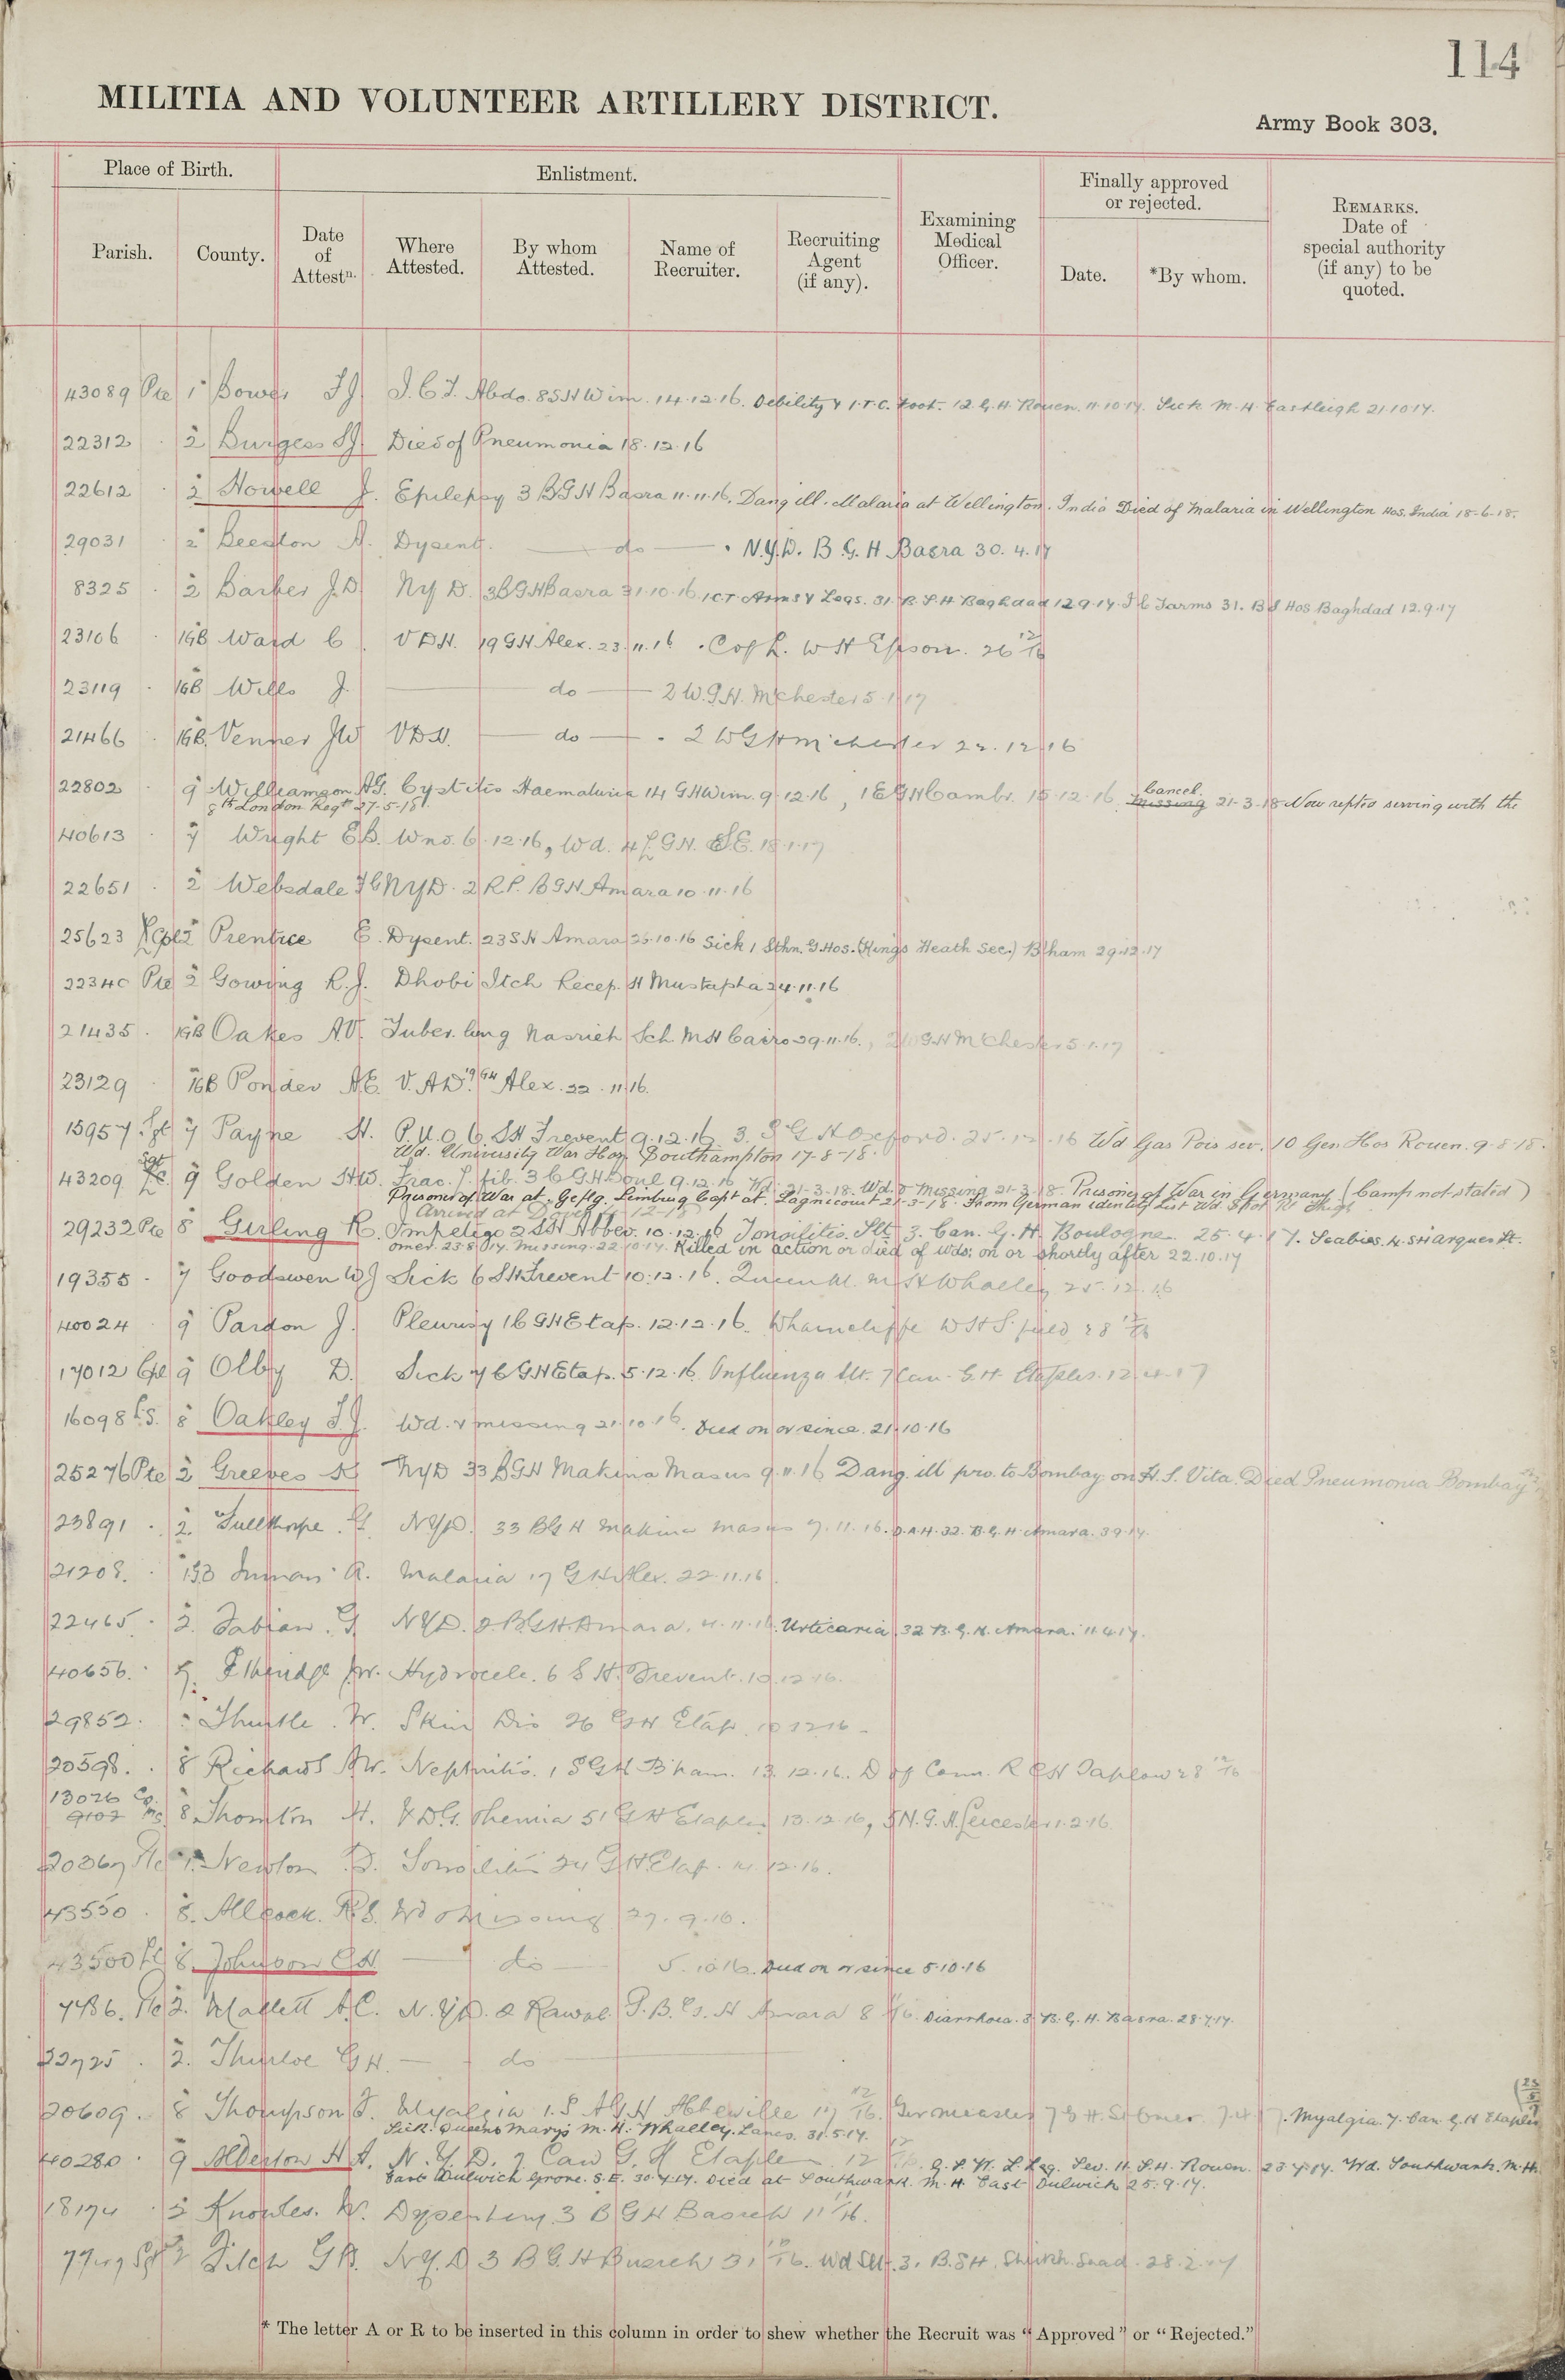 114
MILITIA AND VOLUNTEER ARTILLERY DISTRICT.
Army Book 303.
Place of Birth. Enlistment. Examining Medical Officer. Finally approved or rejected. REMARKS. Date of special authority (if any) to be quoted.
Parish. County. Date of Attestn. Where Attested. By whom Attested. Name of Recruiter. Recruiting Agent (if any). Date. *By whom.
43089 Pte 1 Bowes I.C.T. Abdo. 8 S H Wim. 14.12.16. Debility & I.T.C. Foot. 12. G. H. Rouen. 11.10.17. Sick M. H. Eastleigh 21.10.17.
22312 2 Burgess Died of Pneumonia 18.12.16
22612 2 Howell J. Epilepsy 3 BGH Basra 11.11.16. Dang ill. Malaria at Wellington. India Died of Malaria in Wellington Hos. India 18-6-18.
29031 2 Beeston A. Dysent. do N.Y.D. B. G. H Basra 30.4.17
8325 2 Barber J.D. NYD. 3BGH Basra 31.10.16 ICT Arms & Legs. 31. B.S.H Baghdad 12.9.17 31. B S Hos Baghdad 12.9.17
23106 1GB Ward C V.D.H. 19 GH Alex. 23.11.16 W H Epsom. 26 12/16
23119 1GB Wills J. do 2 W.G.H. Mchester 5.1.17
21466 1GB. Venner JW VDH. do 2 WGH Mchester 22.12.16
22802 9 Williamson AG. Cystitis Haematuria 14 GH Wim. 9.12.16, 1 EGH Cambr. 15.12.16 Missing Cancel. 21-3-18 Now reptd serving with the
8th London Regt 27-5-18
40613 7 Wright E.B. Wnd. 6.12.16, Wd. 4 L GH. 18.1.17
22651 2 Websdale NYD. 2 R.P. BGH Amara 10.11.16
25623 L/Cpl 2 Prentice E. Dysent. 23SH Amara 25.10.16 Sick 1 Sthn. G. Hos. (Kings Heath Sec.) B'ham 29.12.17
22340 Pte 2 Gowing R.J. Dhobi Itch Recep. H Mustapha 24.11.16
21435 1GB Oakes A.V. Tuber. lung Nasrieh Sch. MH Cairo 29.11.16., 2WGH Mchester 5.1.17
23129 1GB Ponder AE. V.A.D. 19 GH Alex. 22.11.16.
15957 Sgt 7 Payne H. P.U.O 6. SH Frevent 9.12.16 3. S G H Oxford. 25.12.16 Wd Gas Pois sev. 10 Gen Hos Rouen. 9-8-18.
Wd. University War Hos. Southampton 17-8-18.
43209 Sgt 9 Golden HW. Frac. J. fib. 3 C GH Boul. 9.12.16 Wd. 21-3-18. Wd & Missing 21-3-18. Prisoner of War in Germany (Camp not stated)
Prisoner of War at Geflg. Limburg Capt at Lagnicourt 21-3-18. From German identity List Wd. Shot Rt thigh
Arrived at Dover 12-18
29232 Pte 8 Girling R. Impetigo 2 SH Abbev. 10.12.16 Tonsilitis. Slt 3. Can. G. H. Boulogne. 25.4.17. Scabies. 4. SH Arques St.
Omer. 23.8.17. Missing 22.10.17. Killed in action or died of wds; on or shortly after 22.10.17
19355 7 Goodswen WJ Sick 6 SH Frevent 10.12.16. Queen M. M H Whalley 25.12.16
40024 9 Pardon J. Pleurisy 16 GH Etap. 12.12.16. Wharncliffe W H S'field 28 12/16
17012 Cpl 9 Olby D. Sick 7 C GH Etap. 5.12.16. Influenza Slt. 7 Can. G.H. Etaples. 12.4.17
16098 L.S. 8 Oakley Wd. & missing 21.10.16. Died on or since. 21.10.16
25276 Pte 2 Greeves NYD 33 BGH Makina Masus 9.11.16 Dang. ill pro. to Bombay on H.S. Vita. Died Pneumonia Bombay
23891 2. Fullthorpe. G NYD. 33 BGH Makina Masus 7.11.16. D.A.H. 32. B.G.H. Amara. 3.9.17.
21208. Inman A. Malaria 17 GH Alex. 22.11.16
22465 2. Fabian. G NYD. 2 BGH Amara. 4.11.16. Urticaria 32 B.G.H. Amara. 11.4.17.
40656. Hydrocele. 6 S H Frevent. 10.12.16.
29852. Thurtle. W. Skin Dis 26 GH Etap. 10 12 16.
20598. 8 Richards AW. Nephritis. 1 SGH B'ham. 13.12.16. D of Conn. R C H Taplow 28 12/16
13026 Co.
9107 MS 8 Thornton H. 51 GH Etaples 13.12.16, 5 N.G.H. Leicester 1.2.16
Newton Tonsilitis 24 GH Etap. 12.16.
43550 8. Allcock. R.S. Wd & Missing 27.9.16.
43500 8. Johnson CH do 5.10.16. Died on or since 5.10.16
7486. Pte 2. Mallett A.C. N.Y.D. 2 Rawal. P.B.G.H Amara 8 Diarrhoea. 3 B.G.H. Basra. 28.7.17.
22725 2. Thurloe GH. do
20609. 8 Thompson J. Myalgia 1.S AGH Abbeville 17 12/16. Ger measles 7 G H. St Omer. Myalgia. 7. Can G H Etaples
Sick. Queens Marys M. H. Whalley. Lancs. 31.5.17.
40280 9 Alderton H A. N.Y.D. 7 Can G. H Etaples 12 G.S.W. L. Leg. Sev. 11. S.H. Rouen. 23.7.17. Wd. Southwark. M.H.
East Dulwich Grove. S.E. 30.7.17. Died at Southwark. M. H. East Dulwich 25.9.17.
18174 2 Knowles. W. Dysentery. 3 BGH Basreh 11 11/16.
Filch GB. N.Y.D 3 B G.H Busreh 31 10/16. Wd Slt. 3. B.S.H. Sheikh Saad. 28.2.17
* The letter A or R to be inserted in this column in order to shew whether the Recruit was "Approved" or "Rejected."